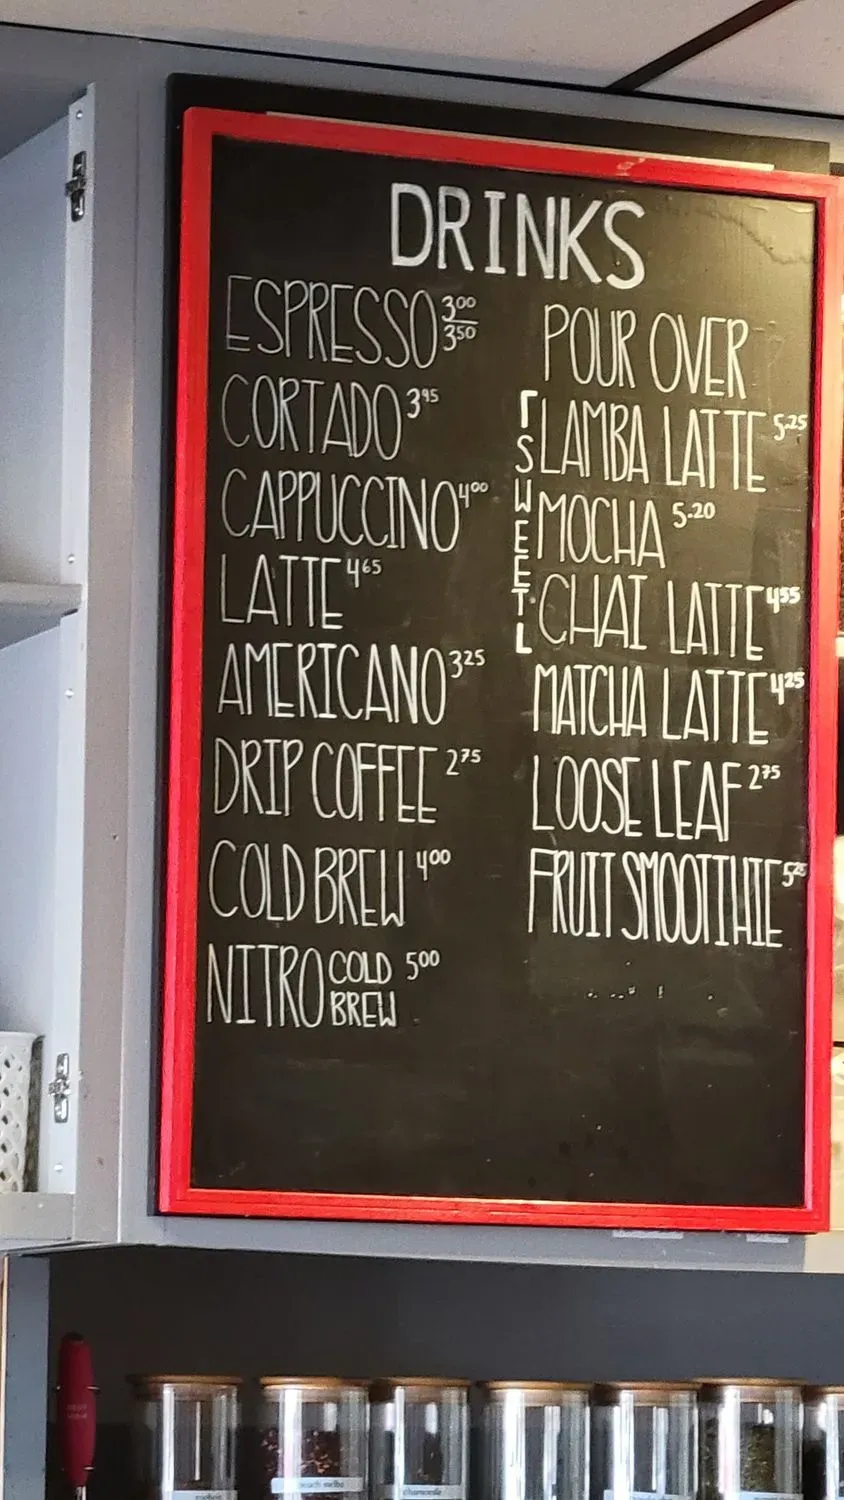 DRINKS
ESPRESSO 3.00 3.50
CORTADO 3.95
CAPPUCCINO 4.00
LATTE 4.65
AMERICANO 3.25
DRIP COFFEE 2.75
COLD BREW 4.00
NITRO COLD BREW 5.00
POUR OVER
SWEET
LAMBA LATTE 5.25
MOCHA 5.20
CHAI LATTE 4.55
MATCHA LATTE 4.25
LOOSE LEAF 2.75
FRUIT SMOOTHIE 5.25
chamomile